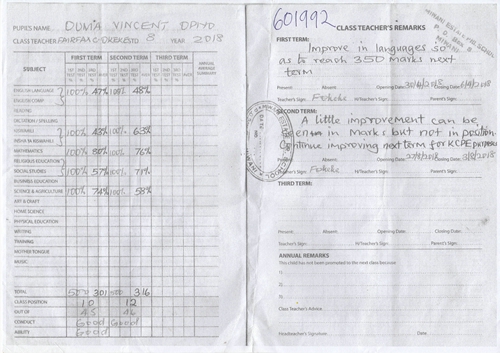 PUPIL'S NAME DUVIA VINCENT OPIYO
CLASS TEACHER STD 8 YEAR 2018
SUBJECT
FIRST TERM SECOND TERM THIRD TERM
ENGLISH LANGUAGE 100% 47% 100% 48%
ENGLISH COMP.
READING
DICTATION / SPELLING
KISWAHILI 100% 43% 100% 63%
INSHA YA KISWAHILI
MATHEMATICS 100% 80% 100% 76%
RELIGIOUS EDUCATION
SOCIAL STUDIES 100% 57% 100% 71%
BUSINESS EDUCATION
SCIENCE & AGRICULTURE 100% 74% 100% 58%
ART & CRAFT
HOME SCIENCE
PHYSICAL EDUCATION
WRITING
TRAINING
MOTHER TONGUE
MUSIC
TOTAL 500 301 500 316
CLASS POSITION 10 12
OUT OF 45 46
CONDUCT Good Good
ABILITY Good Good
601992
CLASS TEACHER'S REMARKS
FIRST TERM:
Improve in languages so
as to reach 350 Marks next
term
Present: Absent: Opening Date: Closing Date:
Teacher's Sign: H/Teacher's Sign: Parent's Sign:
SECOND TERM:
A little improvement can be
seen in Marks but not in position.
Continue improving next term for KCPE purposes
Present: Absent: Opening Date: Closing Date:
Teacher's Sign: H/Teacher's Sign: Parent's Sign:
THIRD TERM:
Present: Absent: Opening Date: Closing Date:
Teacher's Sign: H/Teacher's Sign: Parent's Sign:
ANNUAL REMARKS
This child has not been promoted to the next class because:
Class Teacher's Advice
Headteacher's Signature Date